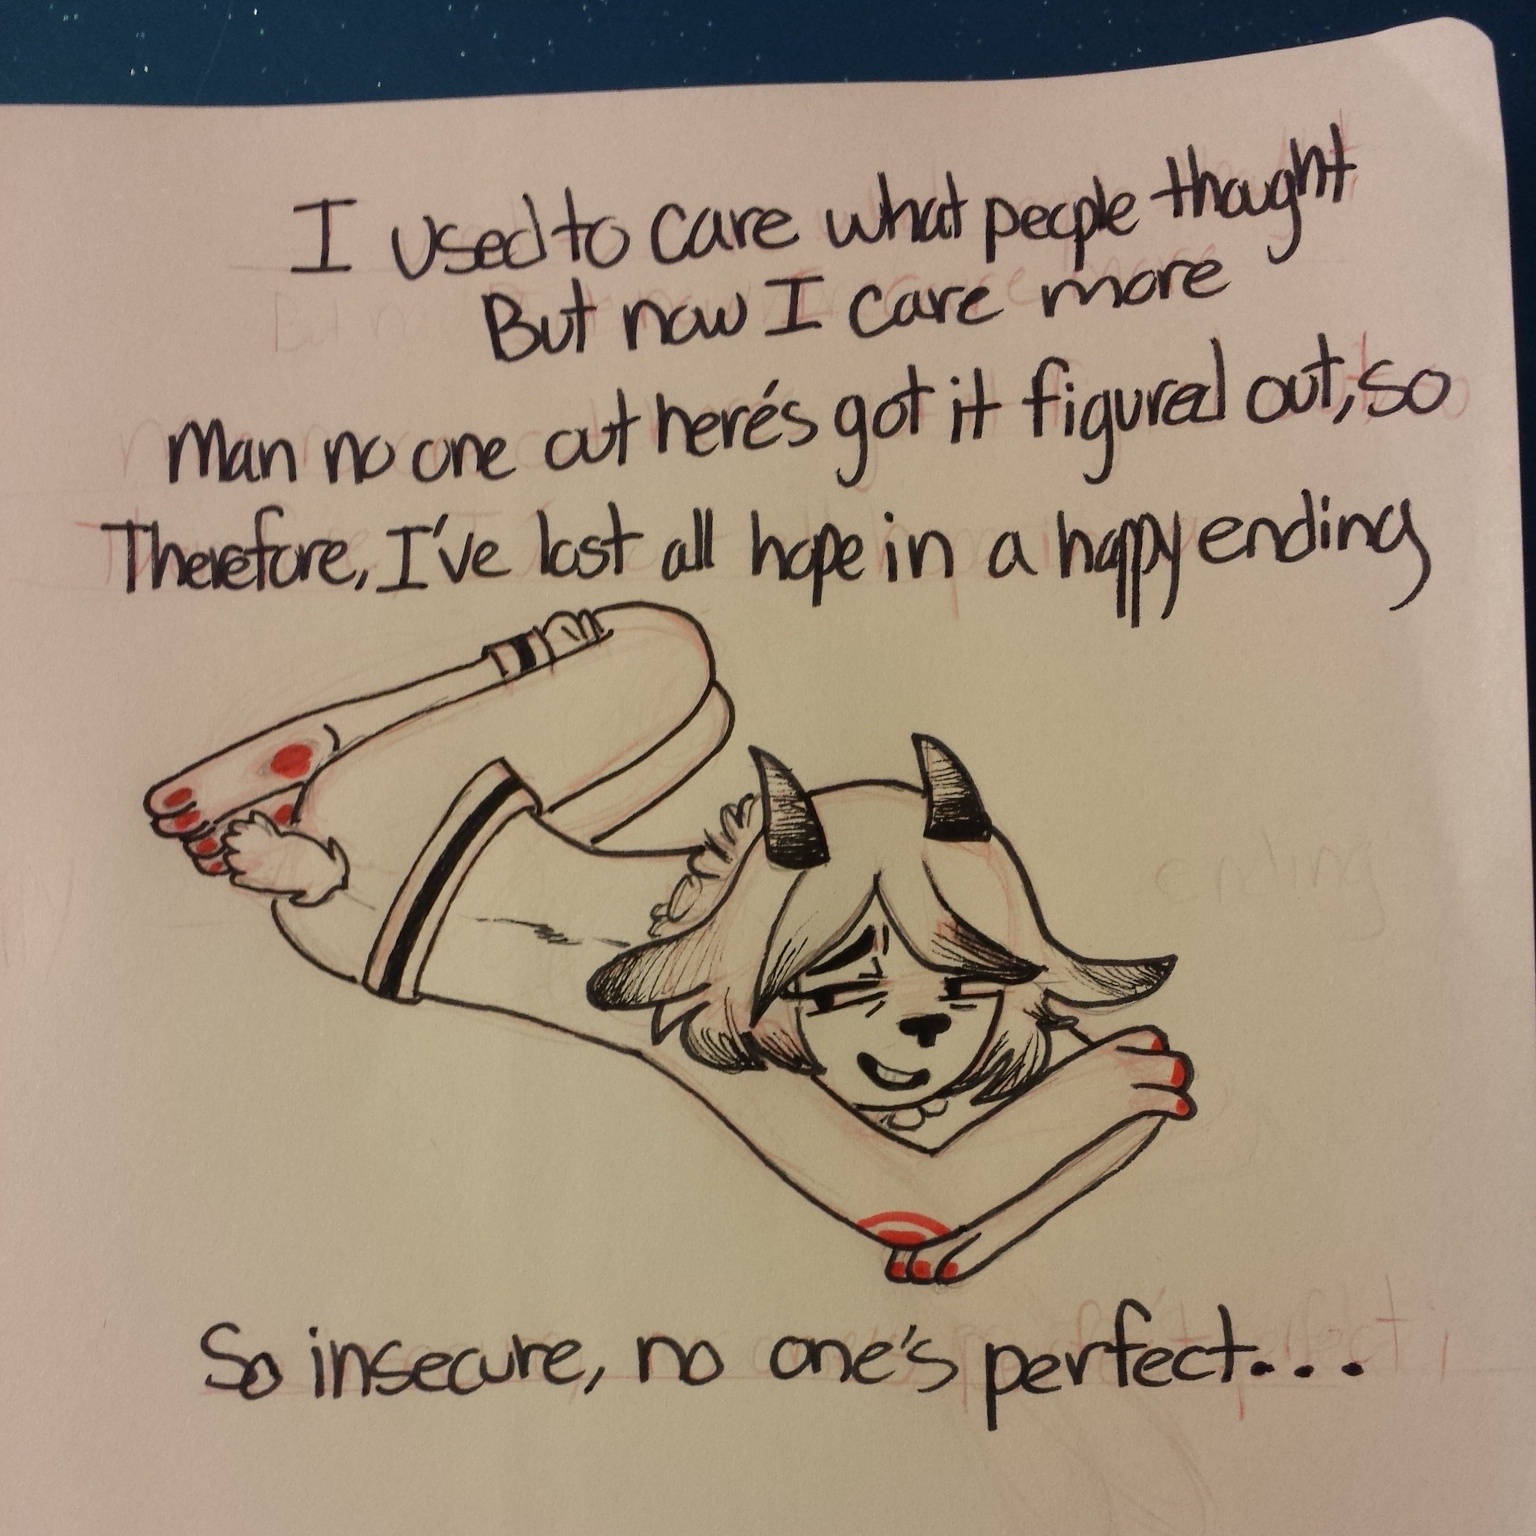 I used to care what people thought
But now I care more
Man no one out here's got it figured out, so
Therefore, I've lost all hope in a happy ending
So insecure, no one's perfect...